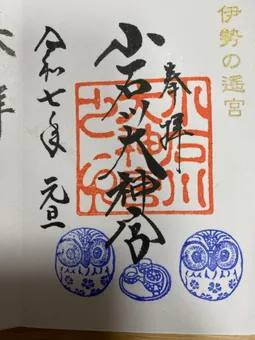 伊勢の遥宮
奉拝
小石川大神宮
令和七年 元旦
小石川